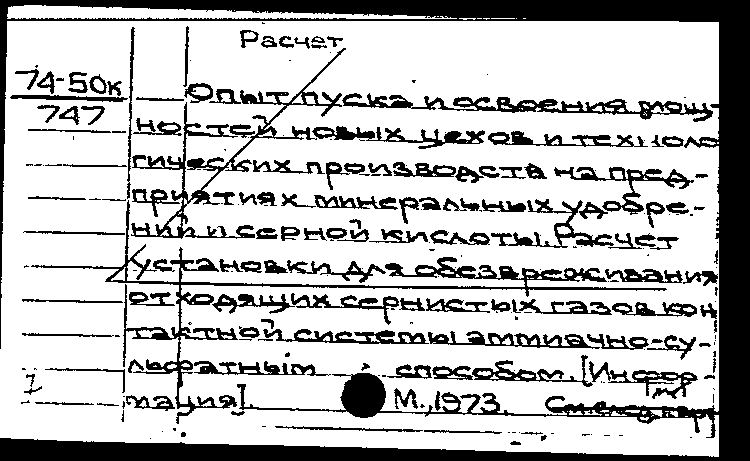 Расчет
74-50к
747
Опыт пуска и освоения мощ-
ностей новых цехов и техноло
гических производств на пред-
приятиях минеральных удобре-
ний и серной кислоты. Расчет
установки для обезвреживания
отходящих сернистых газов кон
тактной системы аммиачно-су-
льфатным способом. [Инфор-
1
мация]. М., 1973. См. след. карт